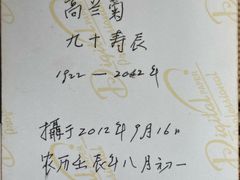 高兰菊
九十寿辰
1922 — 2012年
攝于2012年9月16日
农历壬辰年八月初一